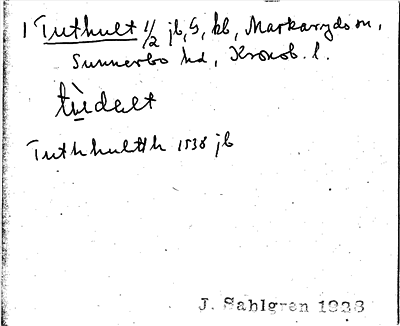 1 Tuthult 1/2 jb, S, kb, Markaryds sn,
Sunnerbo hd, Kronob. l.
tùdelt
Tuthhultth 1538 jb
J. Sahlgren 1928